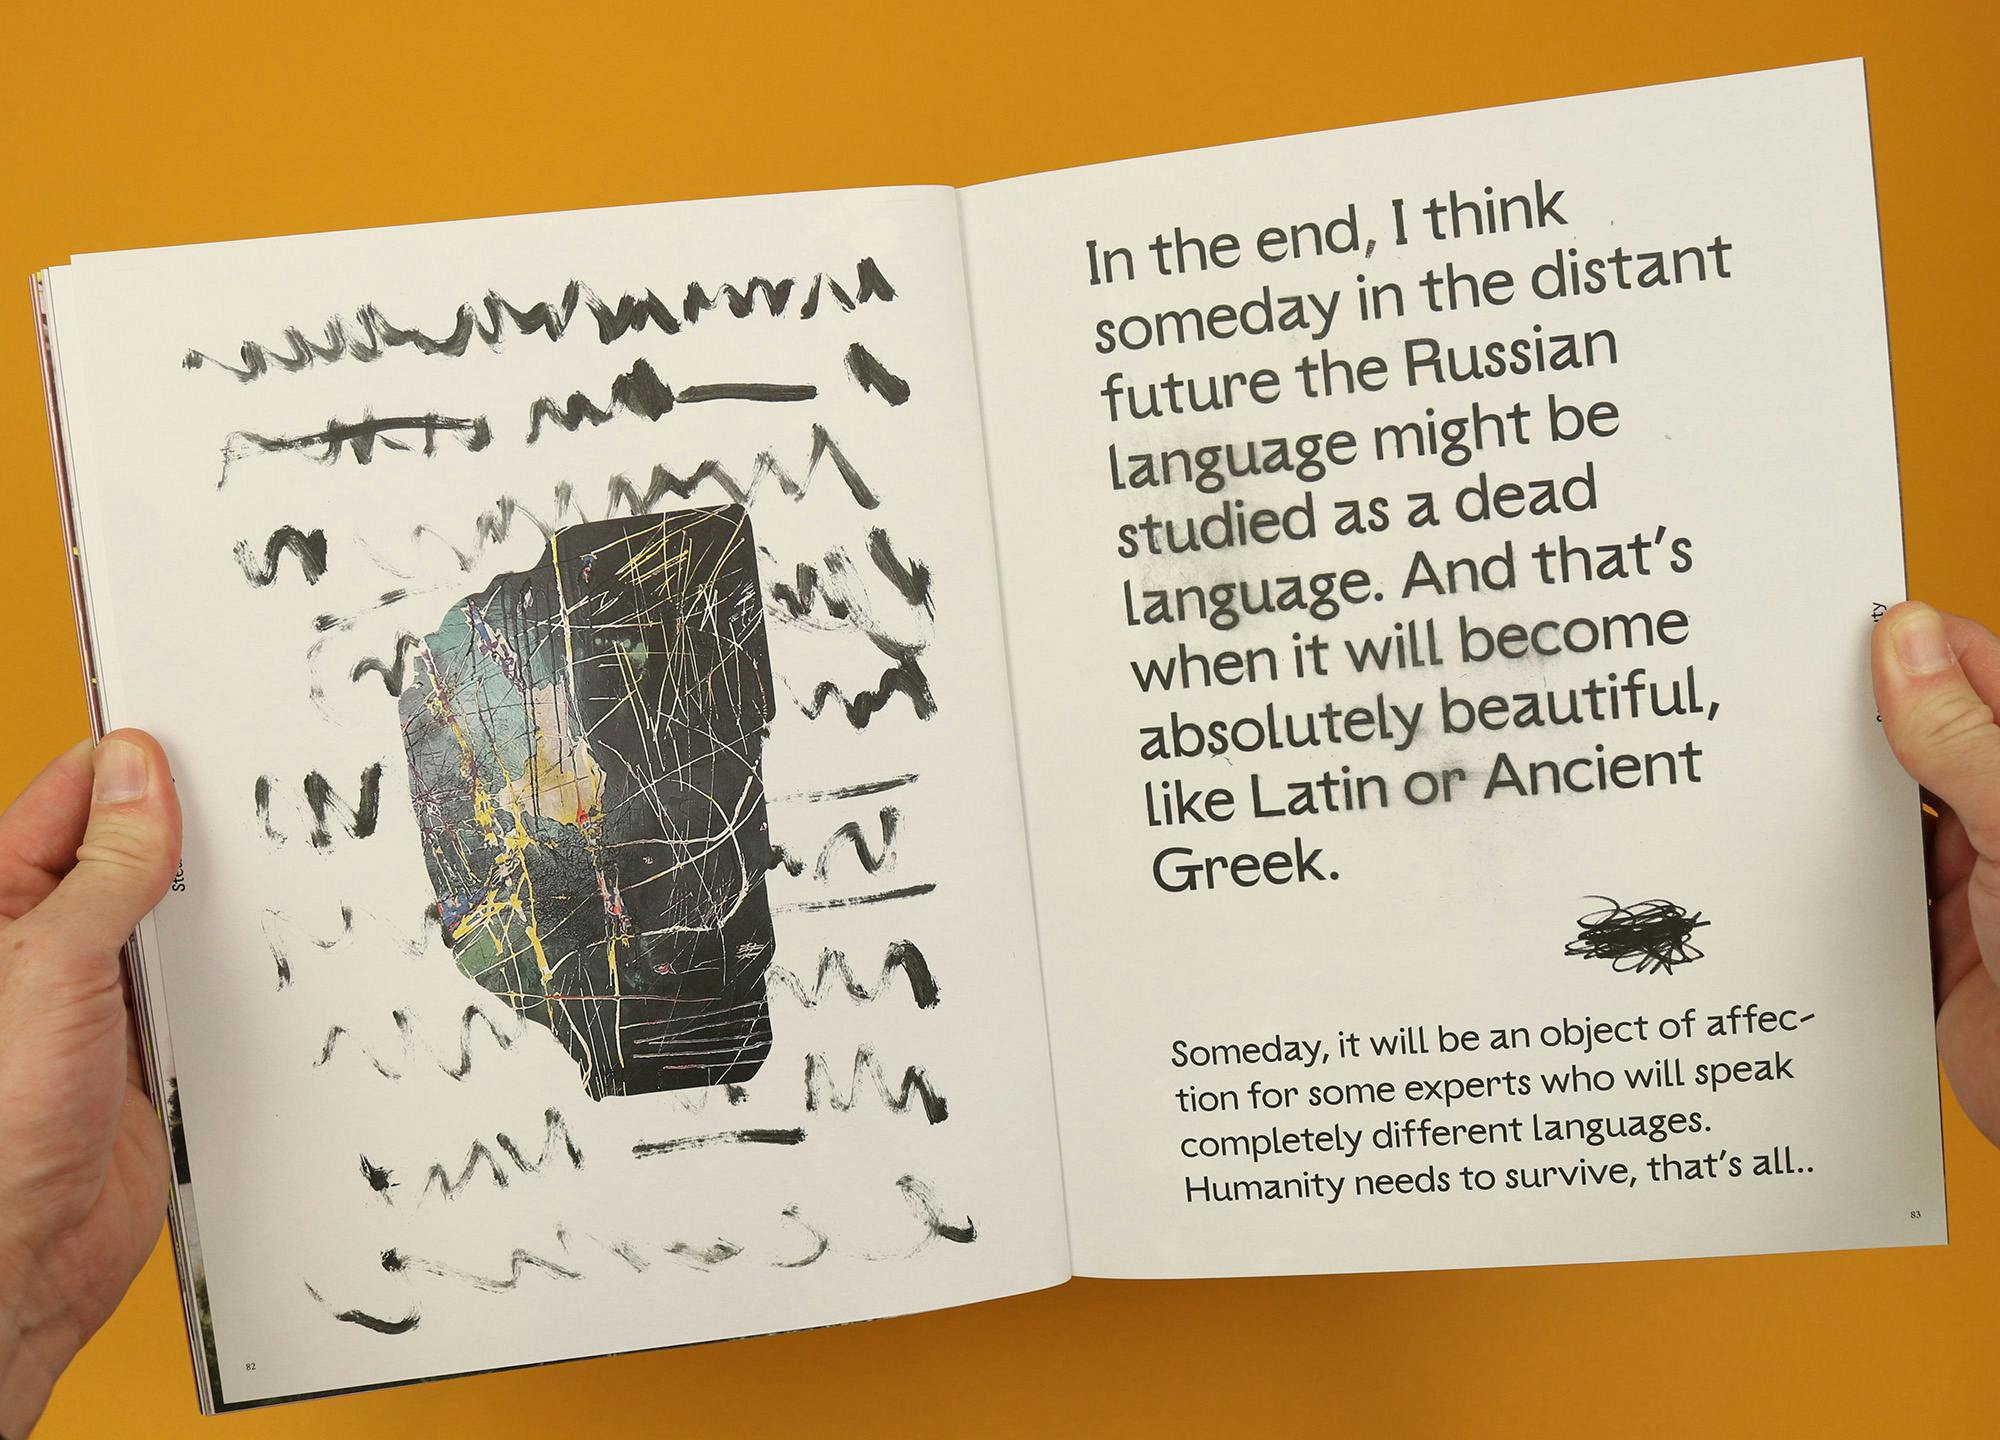 In the end, I think
someday in the distant
future the Russian
language might be
studied as a dead
language. And that's
when it will become
absolutely beautiful,
like Latin or Ancient
Greek.
Someday, it will be an object of affec-
tion for some experts who will speak
completely different languages.
Humanity needs to survive, that's all..
82
83